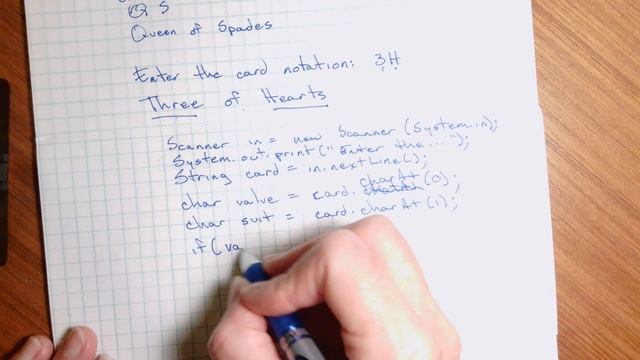 Q S
Queen of Spades
Enter the card notation: 3H
Three of Hearts
Scanner in = new Scanner (System.in);
System.out.print("Enter the ...");
String card = in.nextLine();
char value = card.charAt(0);
char suit = card.charAt(1);
if (va